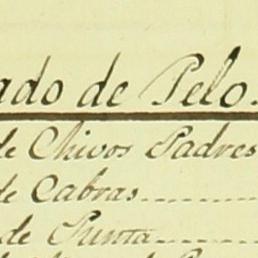 ado de Pelo.
de Chivos Padres
de Cabras
de Punta